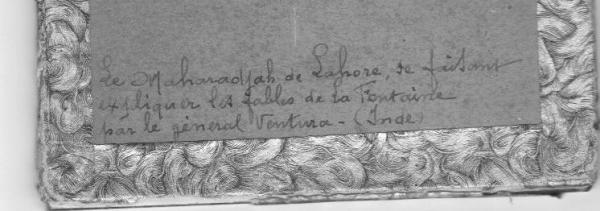 Le Maharadjah de Lahore, se faisant
expliquer les fables de la Fontaine
par le général Ventura - (Inde)